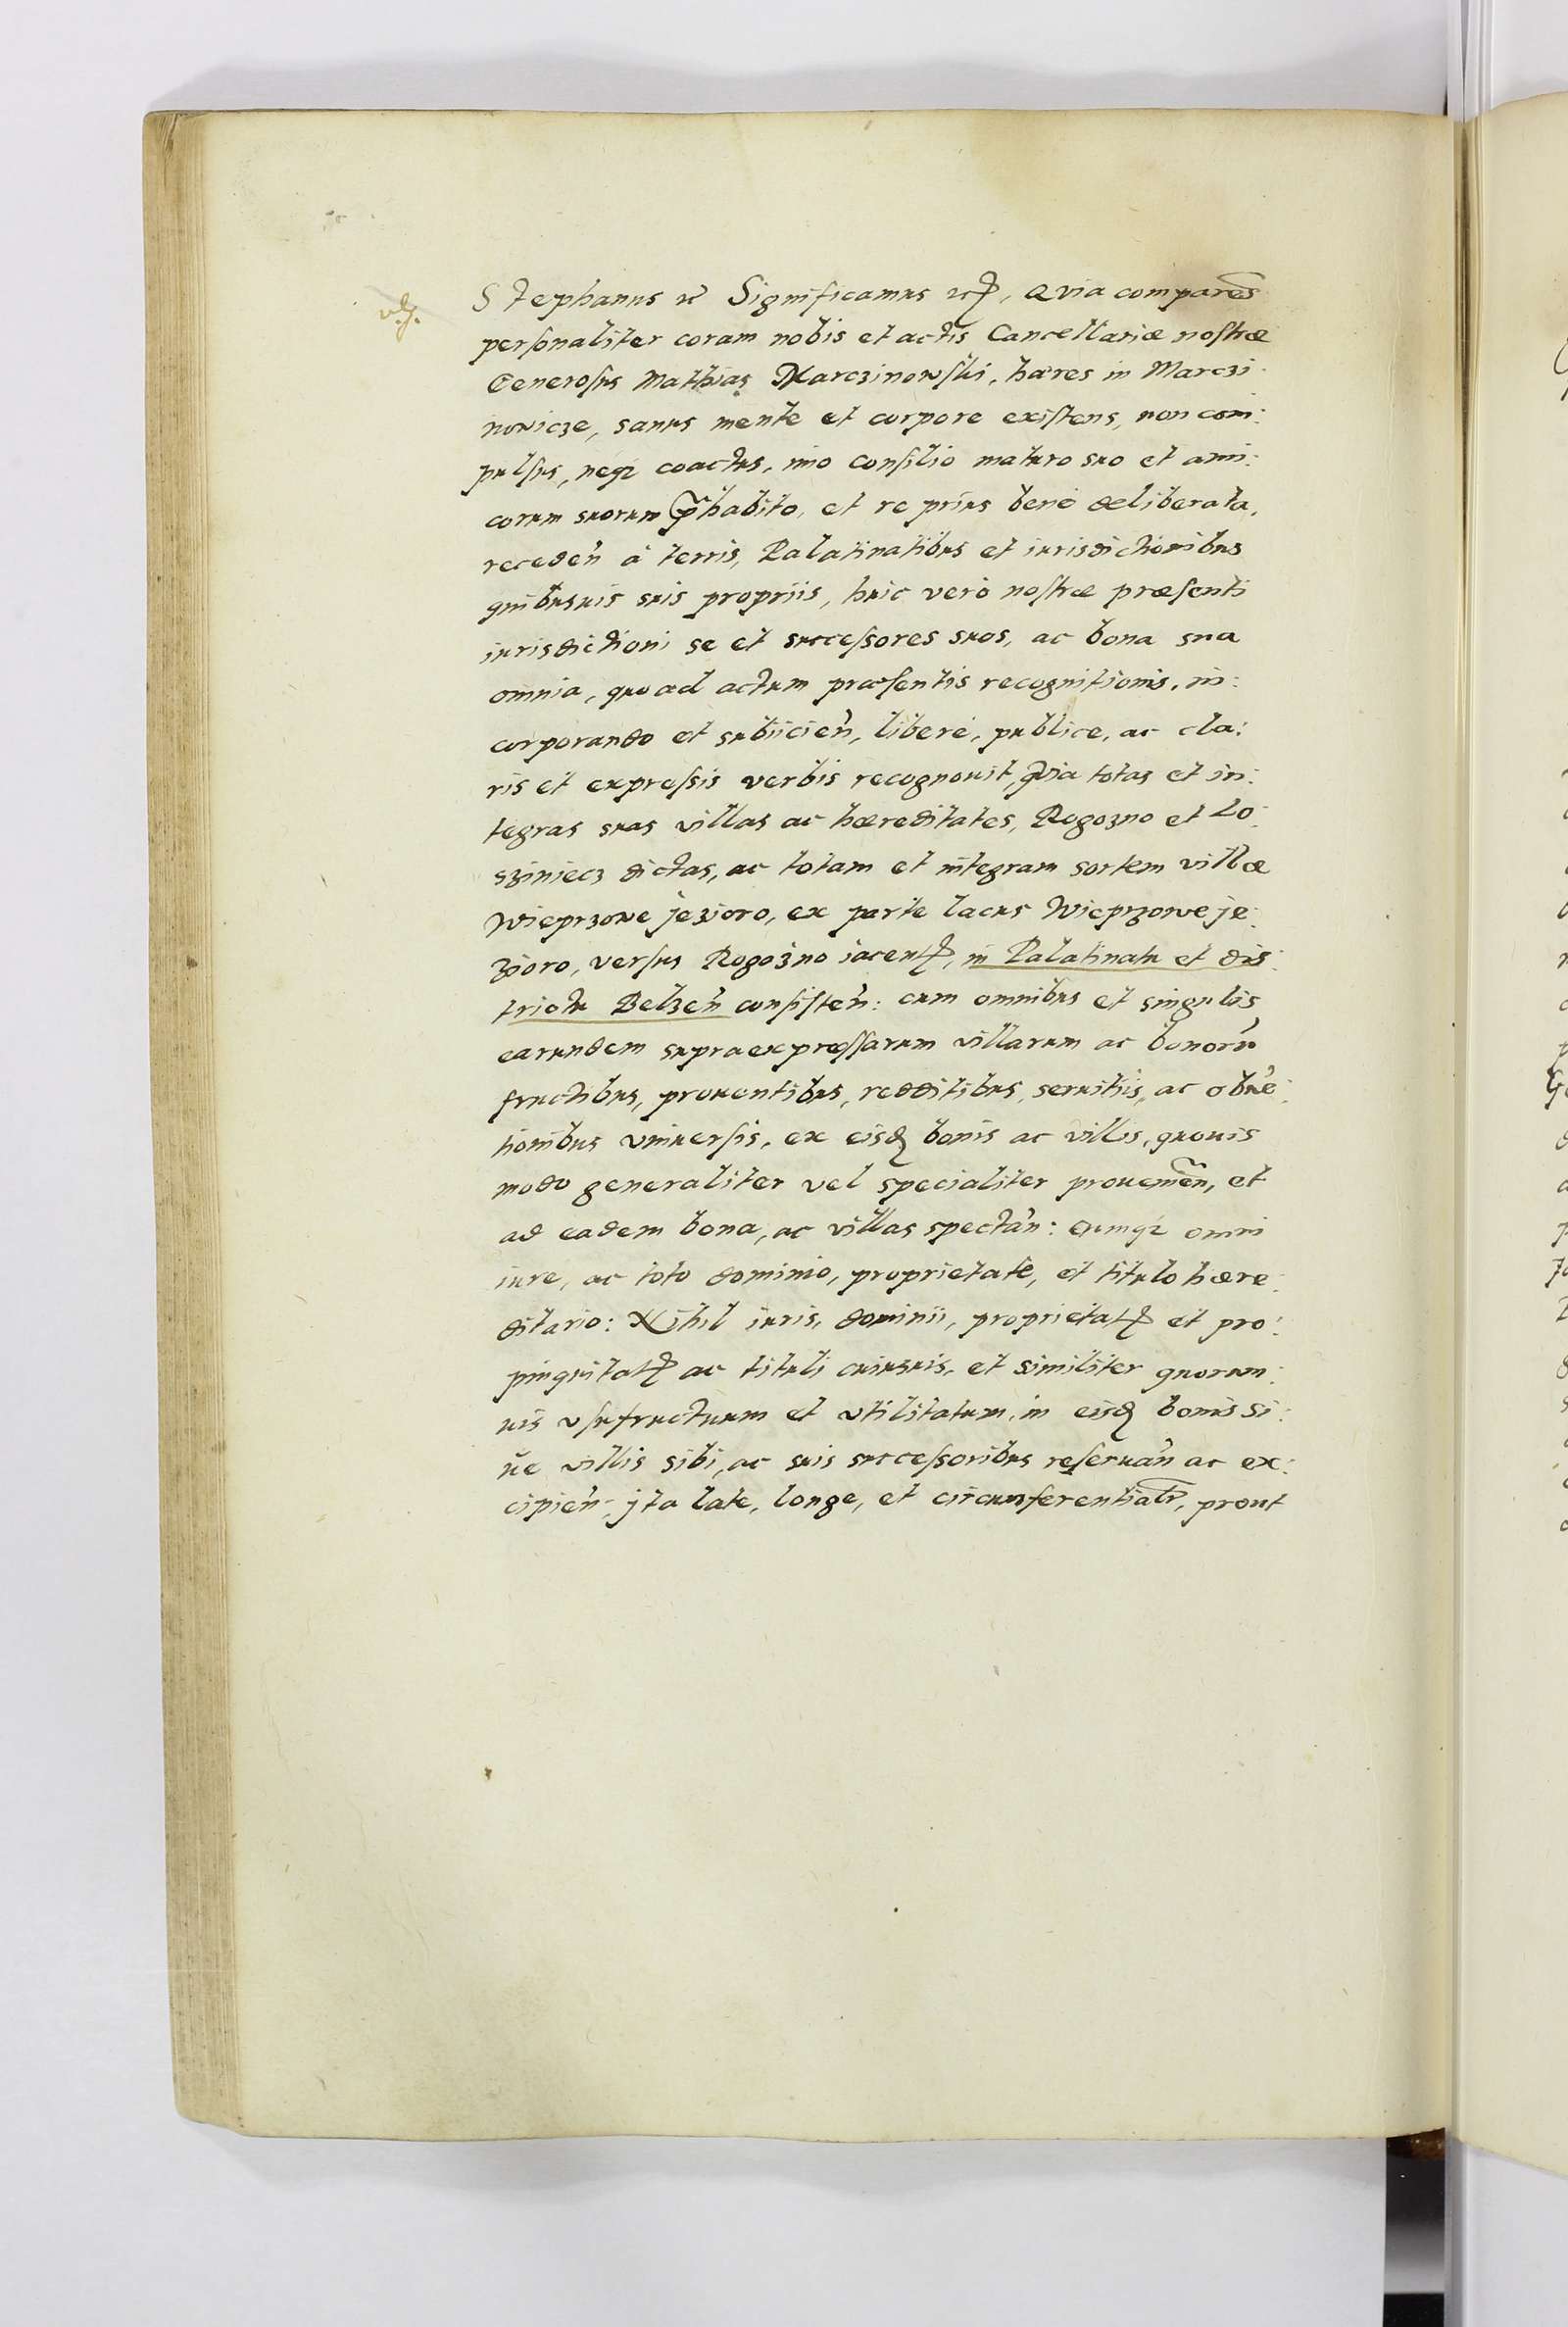 Stephanus etc Significamus etc, Quia comparens
personaliter coram nobis et actis Cancellariæ nostræ
Generosus Mathias Marczinowski, hæres in Marczi:
nowicze, sanus mente et corpore existens, non com:
pulsus, neq3 coactus, imo consilio maturo suo et ami:
corum suorum p̃habito, et re prius benè deliberata,
receden̄ à terris, Palatinatibus et iurisdictionibus
quibusuis suis propriis, huic verò nostræ præsenti
iurisdictioni se et successores suos, ac bona sua
omnia, quo ad actum præsentis recognitionis, in:
corporando et subiicien̄, liberè, publice, ac cla:
ris et expressis verbis recognouit, Quia totas et in:
tegras suas villas ac hæreditates, Rogozno et Lo:
sziniecz dictas, ac totam et integram sortem villæ
Wieprzowe jezioro, ex parte lacus Wieprzowe je:
zioro, versus Rogozno iacentꝭ, in Palatinatu et dis:
trictu Belzen̄ consisten̄: cum omnibus et singulis
earundem supraexpressarum villarum ac bonorū
fructibus, prouentibus, redditibus, seruitiis, ac obue:
tionibus vniuersis, ex eisd bonis ac villis, quouis
modo generaliter vel specialiter prouenien̄, et
ad eadem bona, ac villas spectan̄: cumq3 omni
iure, ac toto dominio, proprietate, et titulo hære:
ditario: Nihil iuris, dominii, proprietatꝭ et pro:
pinquitatꝭ ac tituli cuiusuis, et similiter quorum:
uis vsufructuum et vtilitatum, in eisd bonis si:
ue villis sibi, ac suis successoribus reseruan̄ ac ex:
cipien̄, jta late, longe, et circumferentialr̃, prout